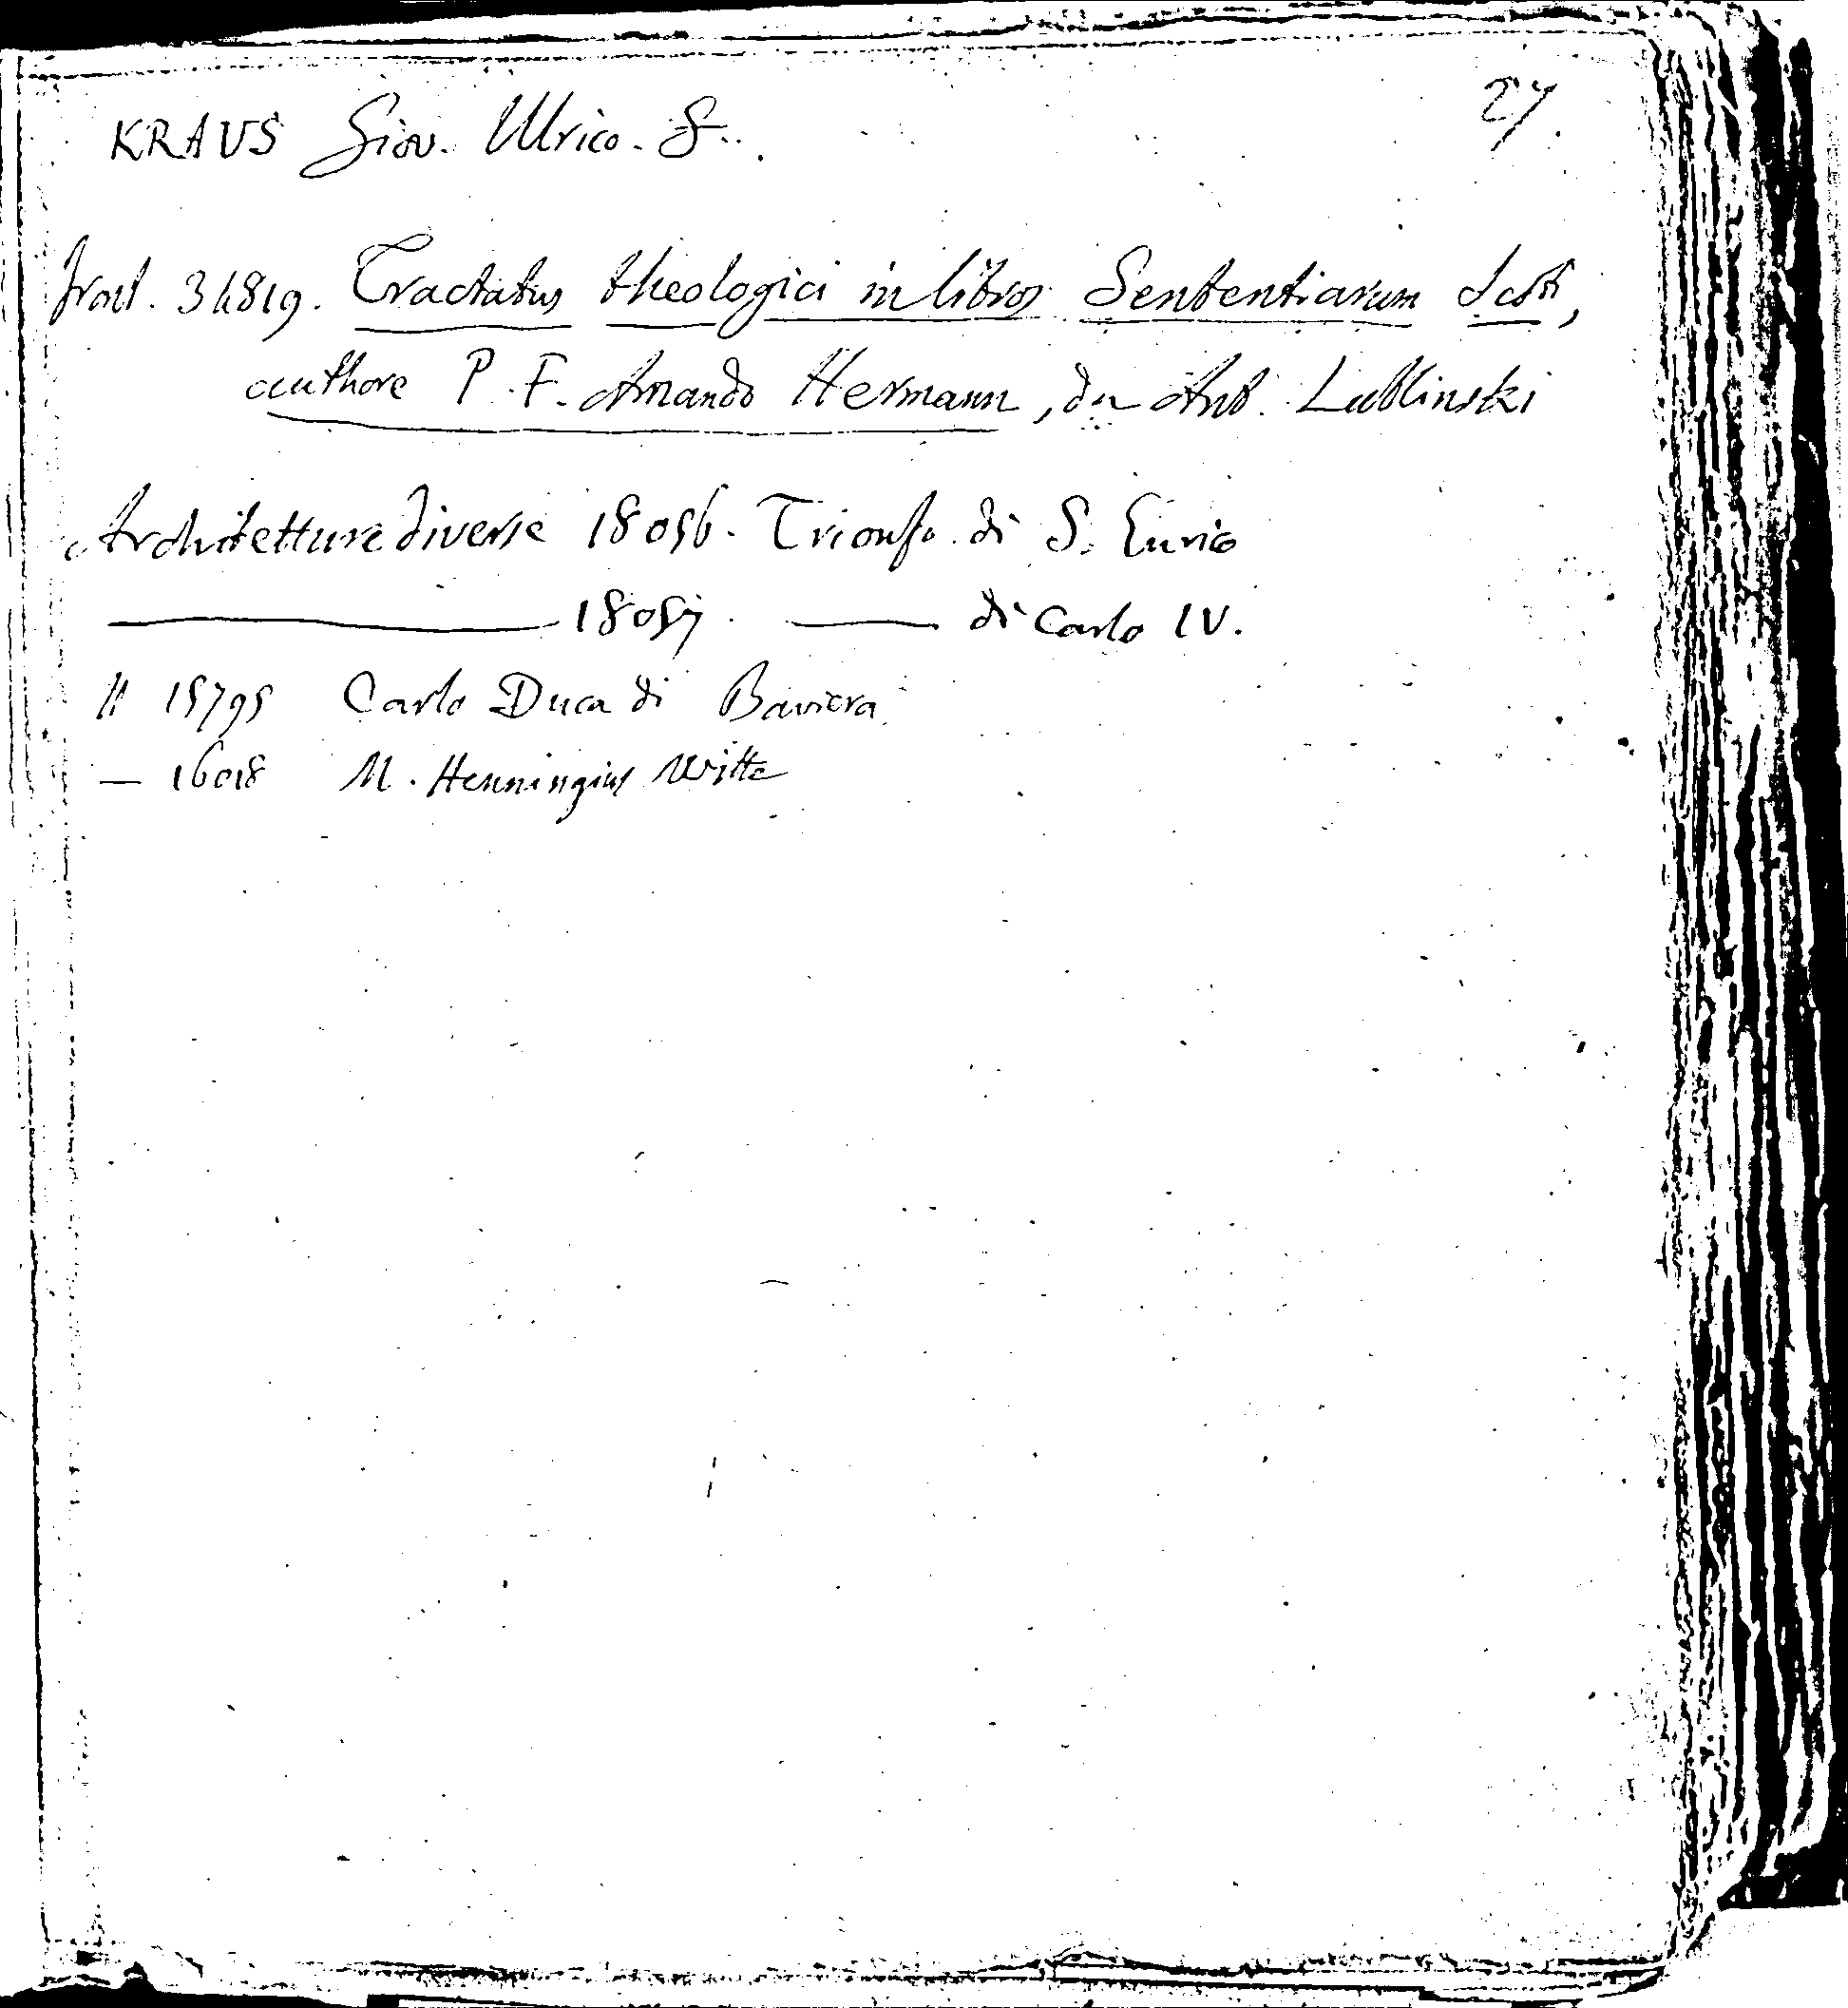 27.
KRAUS Giov. Ulrico. S..
front. 34819. Tractatus theologici in libros Sententiarum Scoti,
authore P. F. Amando Hermann, da Ant. Lublinski
Architetture diverse 18056. Trionfo di S. Enrico
——— 18057. ——— di Carlo IV.
H 15795 Carlo Duca di Baviera
— 16018 M. Henningius Witte